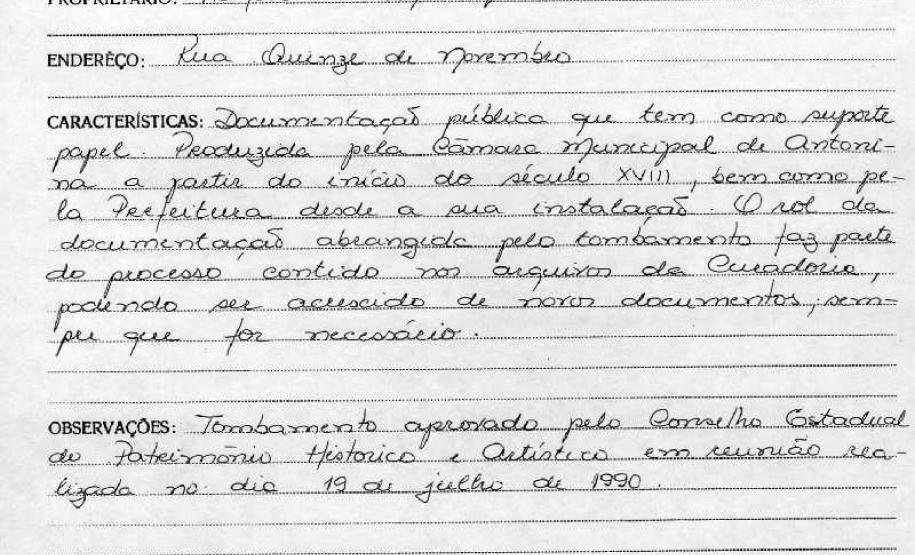 PROPRIETÁRIO:
ENDERÊÇO: Rua Quinze de Novembro
CARACTERÍSTICAS: Documentação pública que tem como suporte
papel. Produzida pela Câmara Municipal de Antoni-
na a partir do início do século XVIII, bem como pe-
la Prefeitura desde a sua instalação. O rol da
documentação abrangida pelo tombamento faz parte
do processo contido nos arquivos da Curadoria,
podendo ser acrescido de novos documentos, sem-
pre que for necessário.
OBSERVAÇÕES: Tombamento aprovado pelo Conselho Estadual
do Patrimônio Histórico e Artístico em reunião rea-
lizada no dia 19 de julho de 1990.